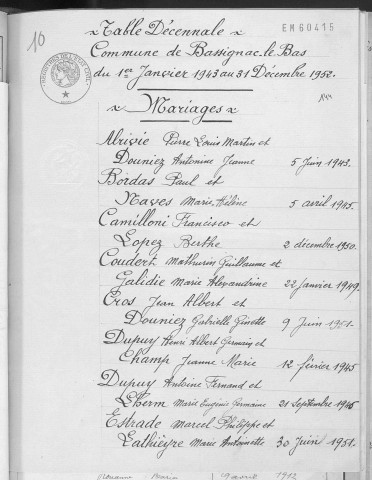 10
EM60415
Table Décennale
Commune de Bassignac-le-Bas
du 1er Janvier 1943 au 31 Décembre 1952.
Mariages
Pierre Louis Martin et
Douniez Antonine Jeanne 5 Juin 1943.
Bordas Paul et
Naves Marie Hélène 5 avril 1945.
Camilloni Francisco et
Lopez Berthe 2 décembre 1950.
Coudert Mathurin Guillaume et
Galidie Marie Alexandrine 22 janvier 1949.
Cros Jean Albert et
Douniez Gabrielle Ginette 9 Juin 1951.
Dupuy Henri Albert Germain et
Champ Jeanne Marie 12 février 1945
Dupuy Antoine Fernand et
Lherm Marie Eugénie Germaine 21 Septembre 1946
Estrade Marcel Philippe et
Lathieyre Marie Antoinette 30 Juin 1951.
avril 1952